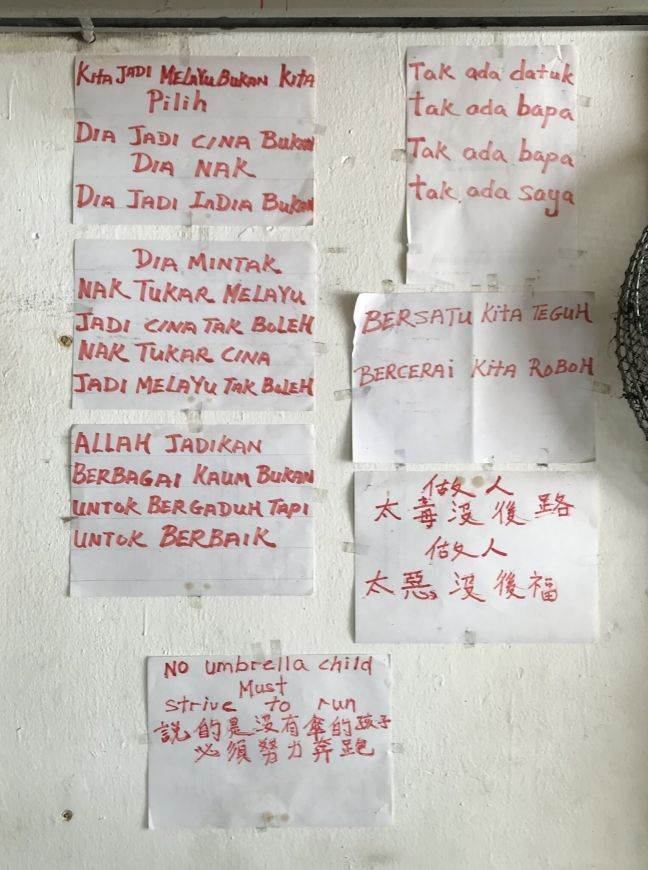 KITA JADI MELAYU BUKAN KITA
Pilih
DIA JADI CINA BUKAN
DIA NAK
DIA JADI InDIA BUKAN
DIA MINTAK
NAK TUKAR MELAYU
JADI CINA TAK BOLEH
NAK TUKAR CINA
JADI MELAYU TAK BOLEH
ALLAH JADIKAN
BERBAGAI KAUM BUKAN
UNTOK BERGADUH TAPI
UNTOK BERBAIK
Tak ada datuk
tak ada bapa
Tak ada bapa
tak ada saya
BERSATU KITA TEGUH
BERCERAI KITA ROBOH
做人
太毒沒後路
做人
太惡沒後福
NO umbrella child
Must
strive to run
說的是沒有傘的孩子
必須努力奔跑